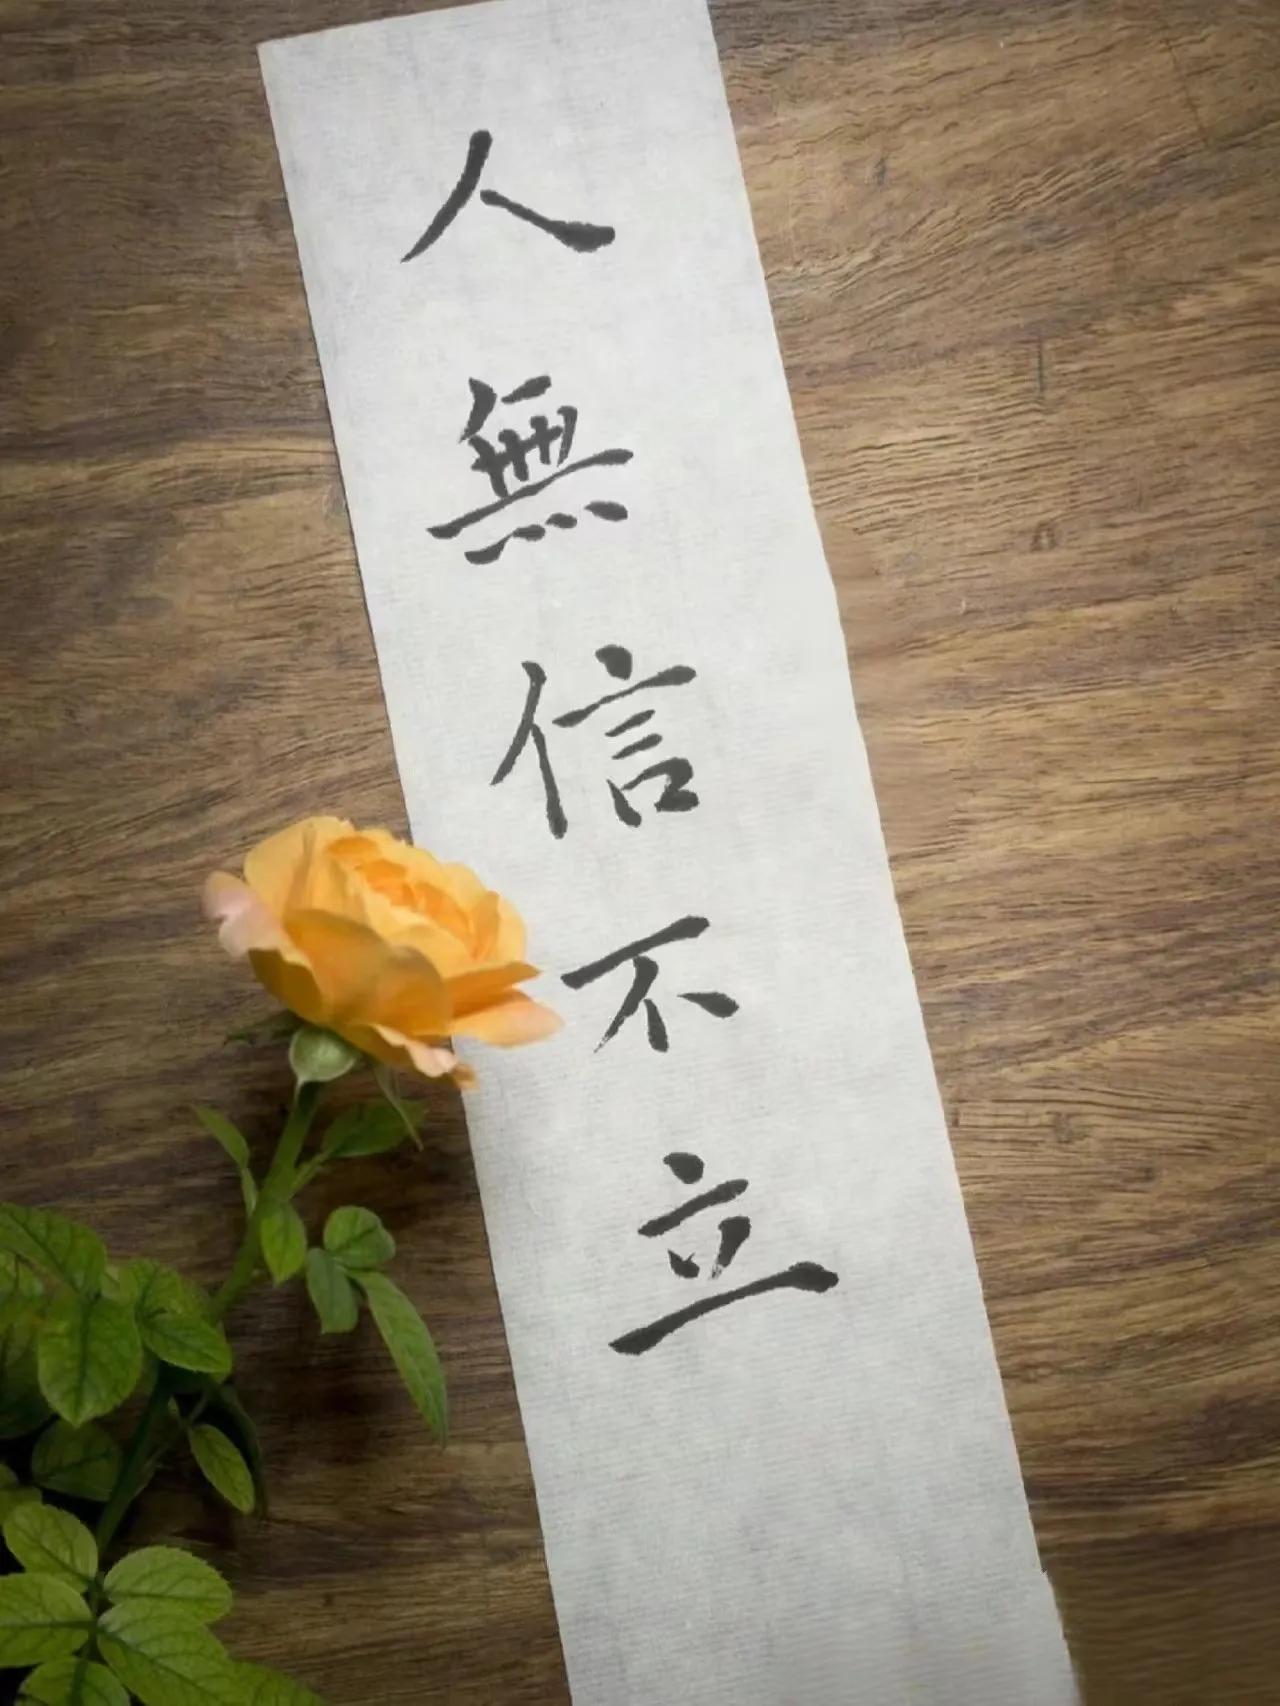 人無信不立